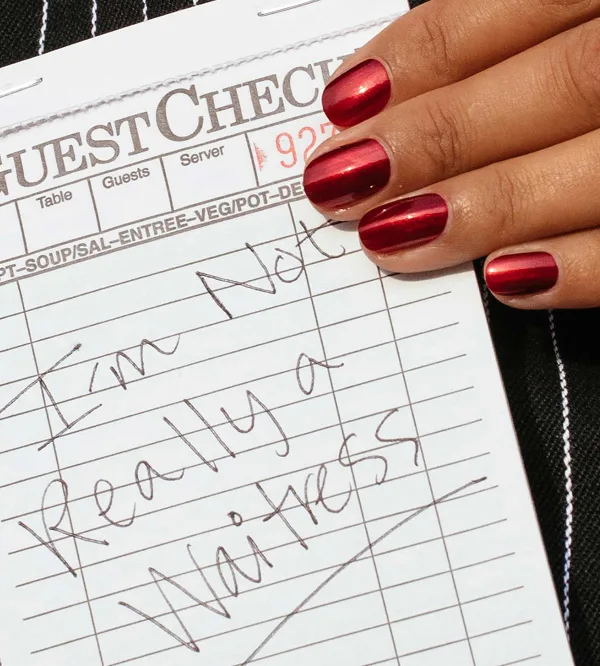 GUEST CHECK
Table Guests Server 927
PT–SOUP/SAL–ENTREE–VEG/POT–DE
I'm Not
Really a
Waitress